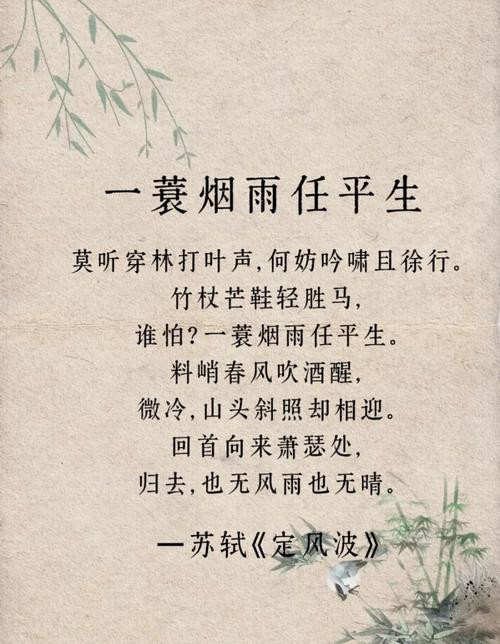 一蓑烟雨任平生
莫听穿林打叶声,何妨吟啸且徐行。
竹杖芒鞋轻胜马,
谁怕?一蓑烟雨任平生。
料峭春风吹酒醒,
微冷,山头斜照却相迎。
回首向来萧瑟处,
归去,也无风雨也无晴。
—苏轼《定风波》